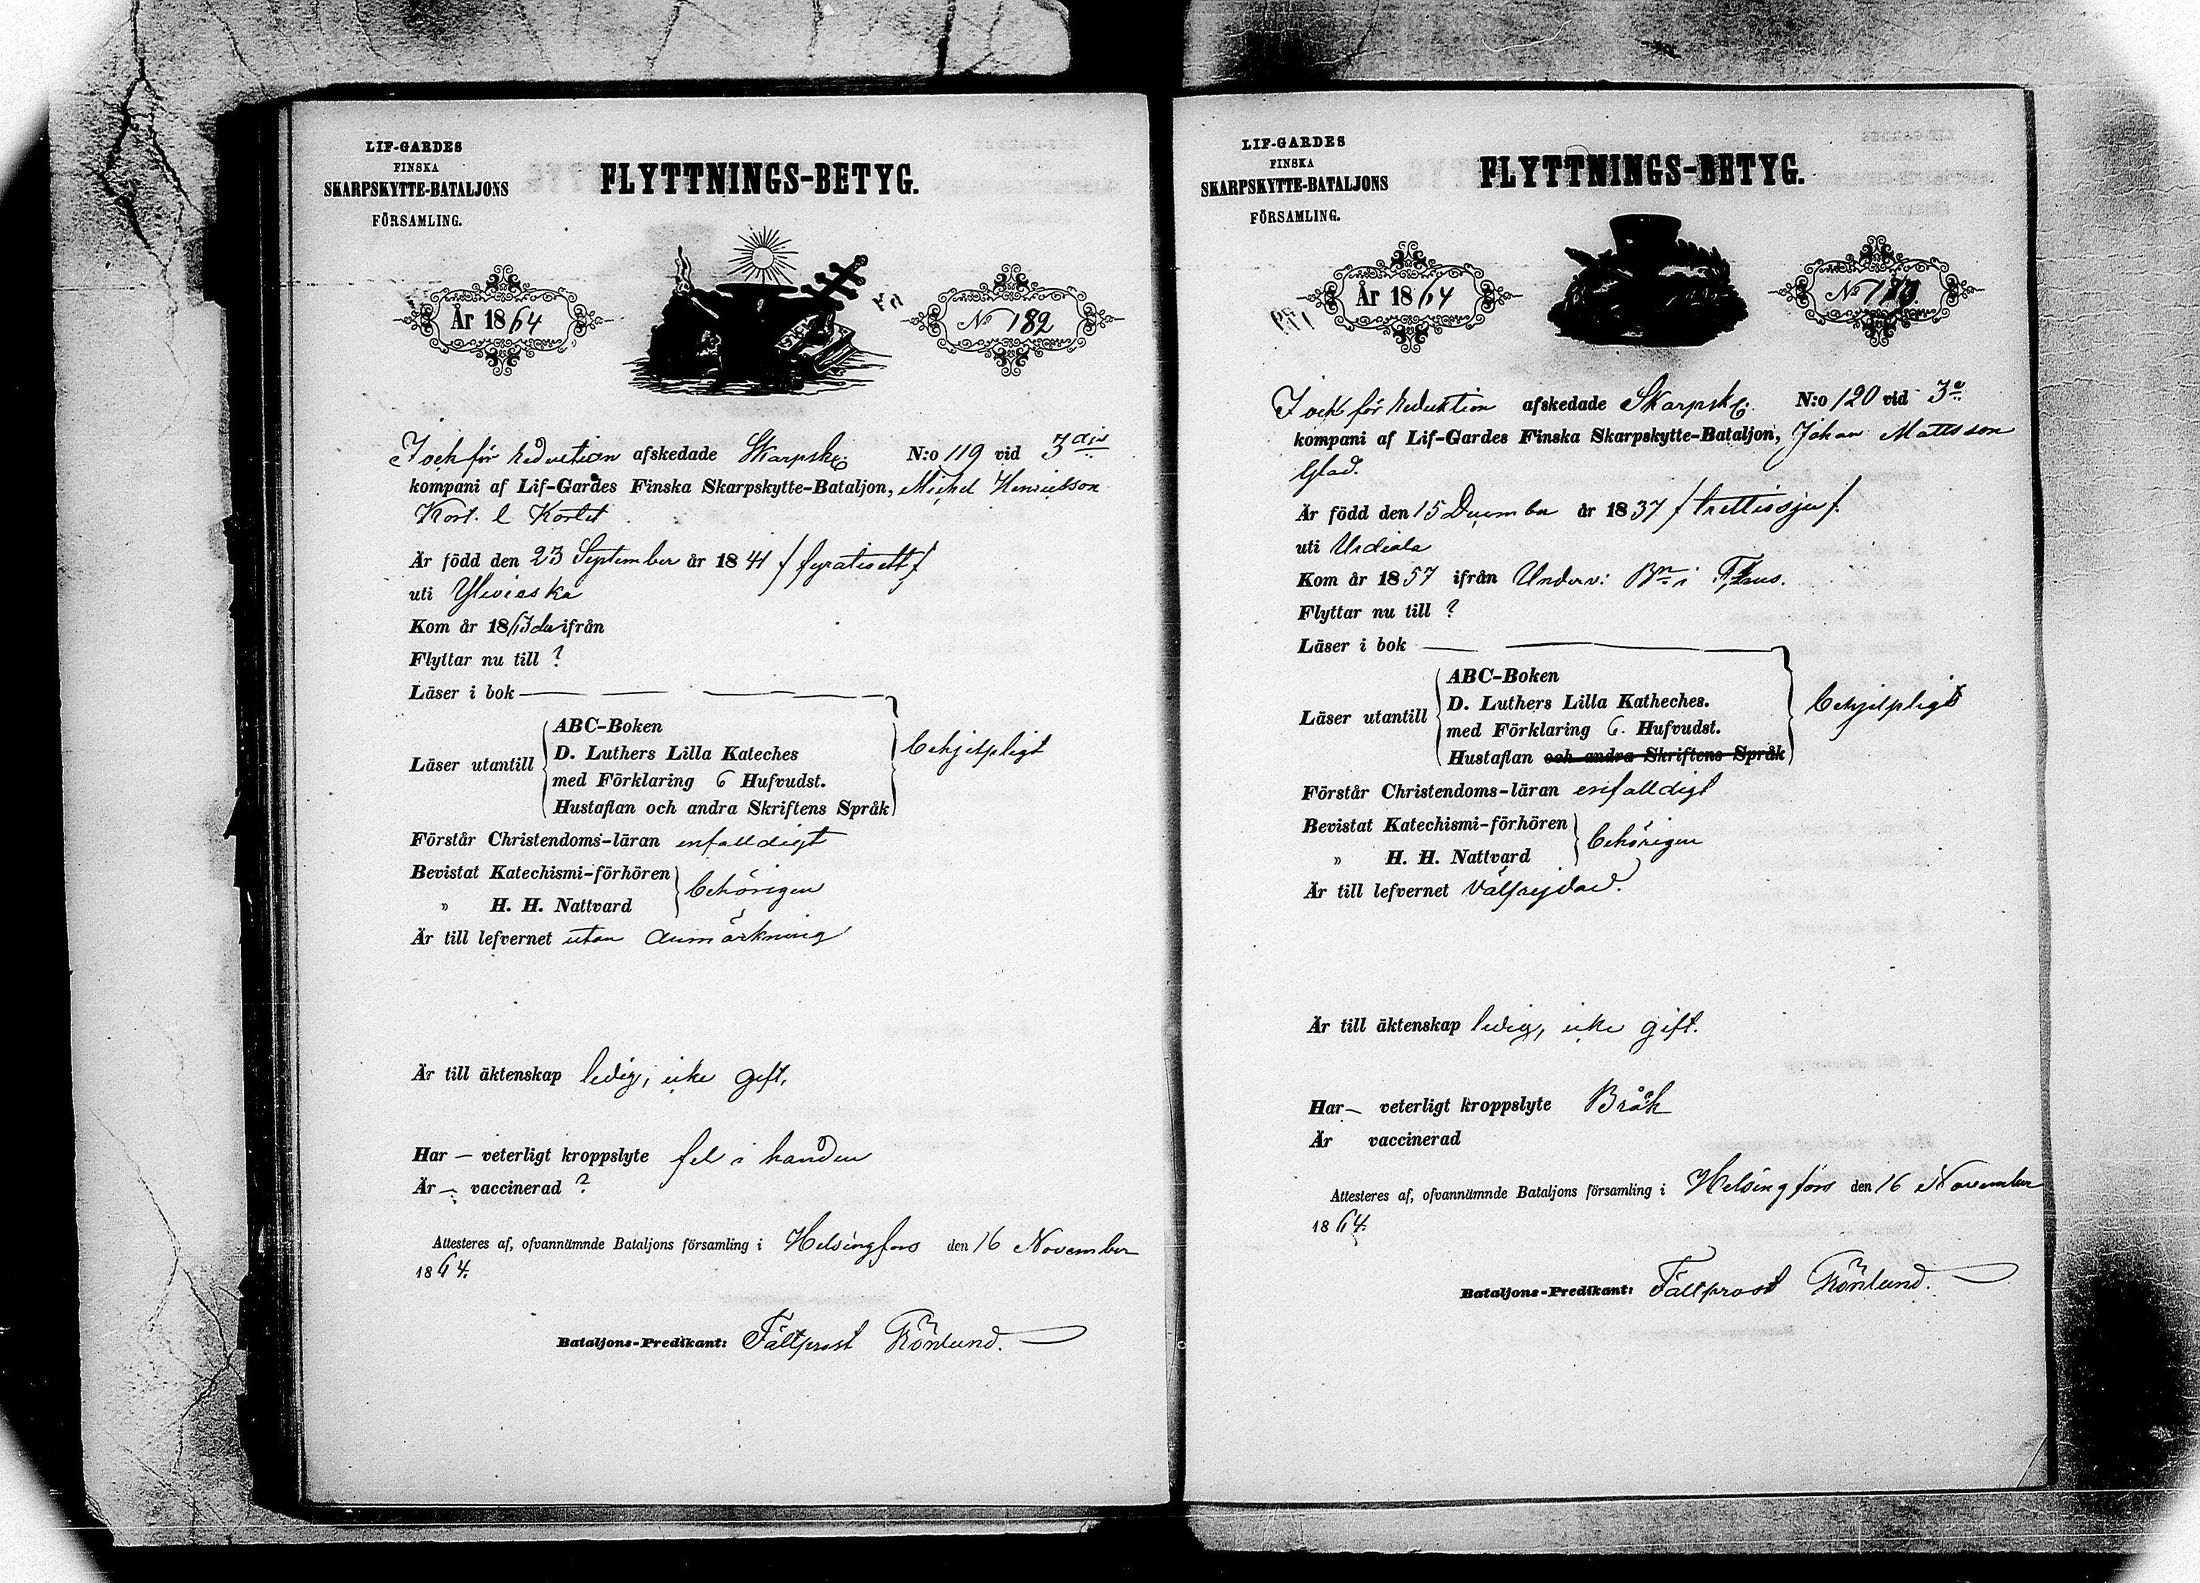 LIF-GARDES
FINSKA
SKARPSKYTTE-BATALJONS
FÖRSAMLING.
FLYTTNINGS-BETYG.
År 1864
No 182
I och för reduction afskedade Skarpsk. N:o 119 vid 3
kompani af Lif-Gardes Finska Skarpskytte-Bataljon, Michel Henricsson
Kort. l Kortet
Är född den 23 September år 1841 / fyratiett /
uti Ylivieska
Kom år 1863 ifrån
Flyttar nu till ?
Läser i bok
Läser utantill
ABC-Boken
D. Luthers Lilla Kateches
med Förklaring 6 Hufvudst.
Hustaflan och andra Skriftens Språk
behjelpligt
Förstår Christendoms-läran enfalldigt
Bevistat Katechismi-förhören
" H. H. Nattvard
behörigen
Är till lefvernet utan anmärkning
Är till äktenskap ledig, icke gift.
Har — veterligt kroppslyte fel i handen
Är — vaccinerad ?
Attesteres af, ofvannämnde Bataljons församling i Helsingfors den 16 November
1864.
Bataljons-Predikant: Fältprost Grönlund.
LIF-GARDES
FINSKA
SKARPSKYTTE-BATALJONS
FÖRSAMLING.
FLYTTNINGS-BETYG.
År 1864
No
I och för reduktion afskedade Skarpsk. N:o 120 vid 3e
kompani af Lif-Gardes Finska Skarpskytte-Bataljon, Johan Mattsson
Glad.
Är född den 15 December år 1837 / trettiosju /.
uti Urdiala
Kom år 1857 ifrån Underv: Bn i
Flyttar nu till ?
Läser i bok
Läser utantill
ABC-Boken
D. Luthers Lilla Katheches.
med Förklaring 6. Hufvudst.
Hustaflan och andra Skriftens Språk
behjelpligt
Förstår Christendoms-läran enfalldigt
Bevistat Katechismi-förhören
" H. H. Nattvard
behörigen
Är till lefvernet välfrejdad.
Är till äktenskap ledig, icke gift.
Har — veterligt kroppslyte Bråk
Är vaccinerad
Attesteres af, ofvannämnde Bataljons församling i Helsingfors den 16 November
1864.
Bataljons-Predikant: Fältprost Grönlund.